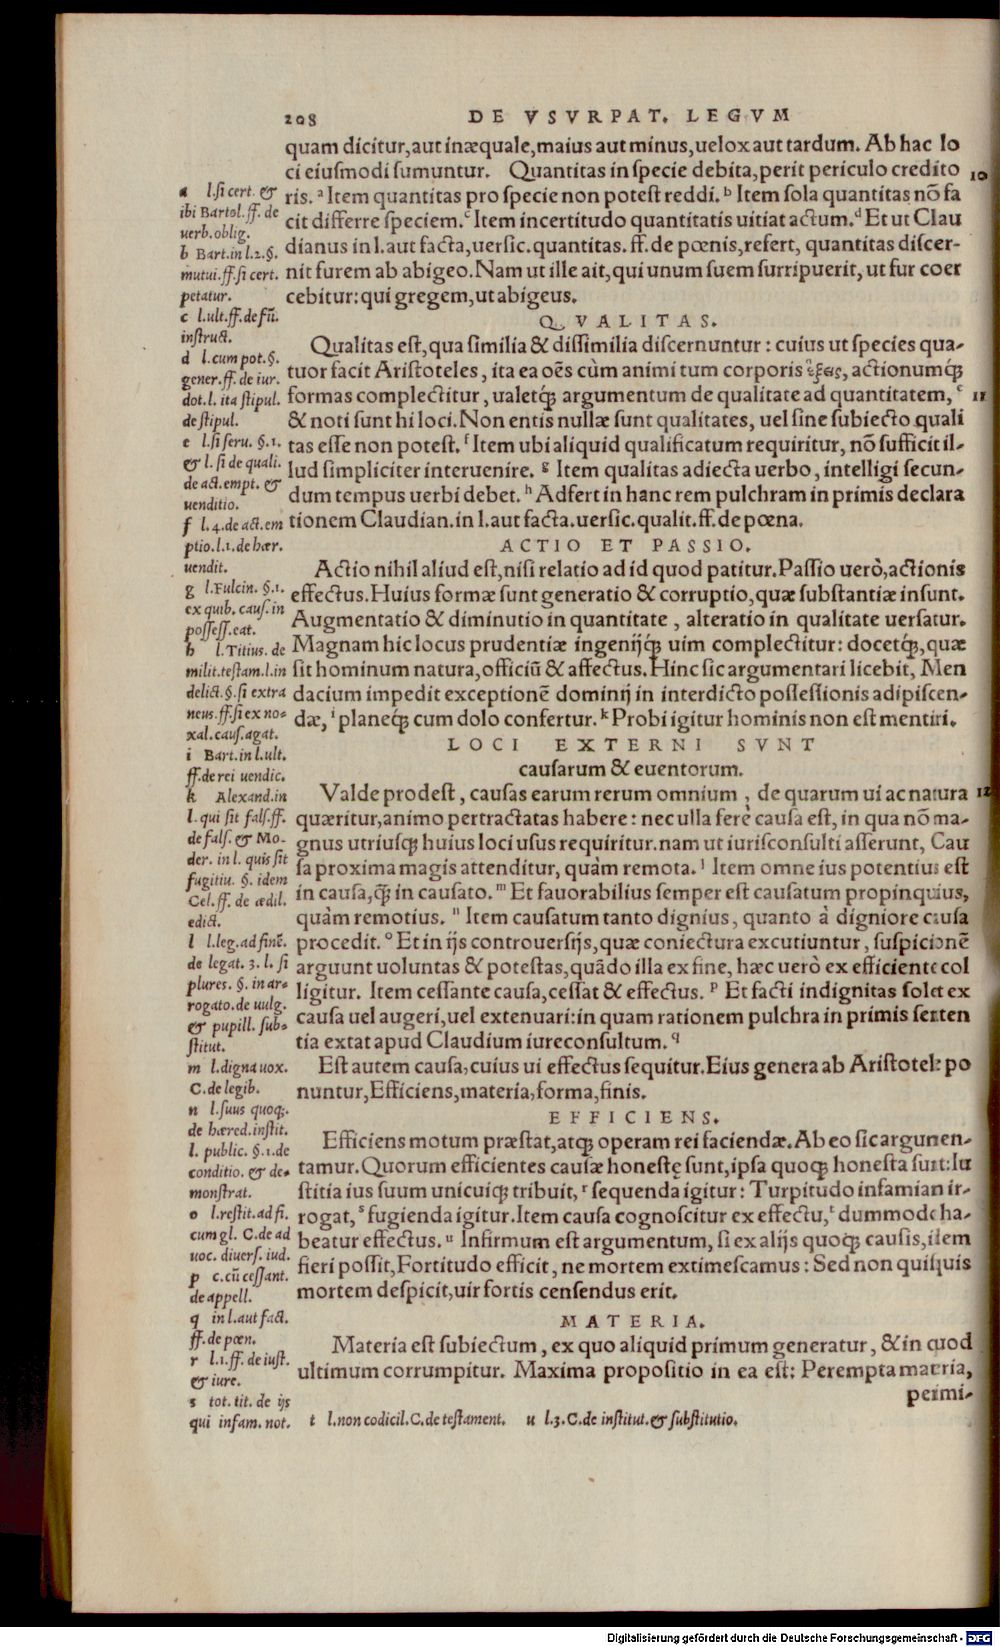 208 DE VSVRPAT. LEGVM
quam dicitur, aut inæquale, maius aut minus, uelox aut tardum. Ab hac lo
ci eiusmodi sumuntur. Quantitas in specie debita, perit periculo credito
ris. ᵃ Item quantitas pro specie non potest reddi. ᵇ Item sola quantitas nõ fa
cit differre speciem. ᶜ Item incertitudo quantitatis uitiat actum. ᵈ Et ut Clau
dianus in l. aut facta, uersic. quantitas. ff. de pœnis, refert, quantitas discer-
nit furem ab abigeo. Nam ut ille ait, qui unum suem surripuerit, ut fur coer
cebitur: qui gregem, ut abigeus.
QVALITAS.
Qualitas est, qua similia & dissimilia discernuntur: cuius ut species qua-
tuor facit Aristoteles, ita ea oẽs cùm animi tum corporis ἕξεις, actionumq́;
formas complectitur, ualetq́; argumentum de qualitate ad quantitatem, ᵉ
& noti sunt hi loci. Non entis nullæ sunt qualitates, uel sine subiecto quali
tas esse non potest. ᶠ Item ubi aliquid qualificatum requiritur, nõ sufficit il-
lud simpliciter interuenire. ᵍ Item qualitas adiecta uerbo, intelligi secun-
dum tempus uerbi debet. ʰ Adfert in hanc rem pulchram in primis declara
tionem Claudian. in l. aut facta. uersic. qualit. ff. de pœna.
ACTIO ET PASSIO.
Actio nihil aliud est, nisi relatio ad id quod patitur. Passio uerò, actionis
effectus. Huius formæ sunt generatio & corruptio, quæ substantiæ insunt.
Augmentatio & diminutio in quantitate, alteratio in qualitate uersatur.
Magnam hic locus prudentiæ ingenijq́; uim complectitur: docetq́;, quæ
sit hominum natura, officiũ & affectus. Hinc sic argumentari licebit, Men
dacium impedit exceptionẽ dominij in interdicto possessionis adipiscen-
dæ, ⁱ planeq́; cum dolo confertur. ᵏ Probi igitur hominis non est mentiri.
LOCI EXTERNI SVNT
causarum & euentorum.
Valde prodest, causas earum rerum omnium, de quarum ui ac natura
quæritur, animo pertractatas habere: nec ulla ferè causa est, in qua nõ ma-
gnus utriusq́; huius loci usus requiritur. nam ut iurisconsulti asserunt, Cau
sa proxima magis attenditur, quàm remota. ˡ Item omne ius potentius est
in causa, q̃ in causato. ᵐ Et fauorabilius semper est causatum propinquius,
quàm remotius. ⁿ Item causatum tanto dignius, quanto à digniore causa
procedit. ᵒ Et in ijs controuersijs, quæ coniectura excutiuntur, suspicionẽ
arguunt uoluntas & potestas, quãdo illa ex fine, hæc uerò ex efficiente col
ligitur. Item cessante causa, cessat & effectus. ᵖ Et facti indignitas solet ex
causa uel augeri, uel extenuari: in quam rationem pulchra in primis senten
tia extat apud Claudium iureconsultum. q
Est autem causa, cuius ui effectus sequitur. Eius genera ab Aristotele po
nuntur, Efficiens, materia, forma, finis.
EFFICIENS.
Efficiens motum præstat, atq́; operam rei faciendæ. Ab eo sic argumen-
tamur. Quorum efficientes causæ honestę sunt, ipsa quoq́; honesta sunt: Iu
stitia ius suum unicuiq́; tribuit, ʳ sequenda igitur: Turpitudo infamiam ir-
rogat, ˢ fugienda igitur. Item causa cognoscitur ex effectu, ᵗ dummodo ha-
beatur effectus. ᵘ Infirmum est argumentum, si ex alijs quoq́; causis, idem
fieri possit, Fortitudo efficit, ne mortem extimescamus: Sed non quisquis
mortem despicit, uir fortis censendus erit.
MATERIA.
Materia est subiectum, ex quo aliquid primum generatur, & in quod
ultimum corrumpitur. Maxima propositio in ea est: Perempta materia,
permi-
10
11
12
a l. si cert. &
ibi Bartol. ff. de
uerb. oblig.
b Bart. in l. 2. §.
mutui. ff. si cert.
petatur.
c l. ult. ff. de fũ.
instruct.
d l. cum pot. §.
gener. ff. de iur.
dot. l. ita stipul.
de stipul.
e l. si seru. §. 1.
& l. si de quali.
de act. empt. &
uenditio.
f l. 4. de act. em
ptio. l. 1. de hær.
uendit.
g l. Fulcin. §. 1.
ex quib. caus. in
possess. eat.
h l. Titius. de
milit. testam. l. in
delict. §. si extra
neus. ff. si ex no-
xal. caus. agat.
i Bart. in l. ult.
ff. de rei uendic.
k Alexand. in
l. qui sit fals. ff.
de fals. & Mo-
der. in l. quis sit
fugitiu. §. idem
Cel. ff. de ædil.
edict.
l l. leg. ad finẽ.
de legat. 3. l. si
plures. §. in ar-
rogato. de uulg.
& pupill. sub-
stitut.
m l. digna uox.
C. de legib.
n l. suus quoq́;.
de hæred. instit.
l. public. §. 1. de
conditio. & de-
monstrat.
o l. restit. ad fi.
cum gl. C. de ad
uoc. diuers. iud.
p c. cũ cessant.
de appell.
q in l. aut fact.
ff. de pœn.
r l. 1. ff. de iust.
& iure.
s tot. tit. de ijs
qui infam. not. t l. non codicil. C. de testament. u l. 3. C. de institut. & substitutio.
Digitalisierung gefördert durch die Deutsche Forschungsgemeinschaft - DFG